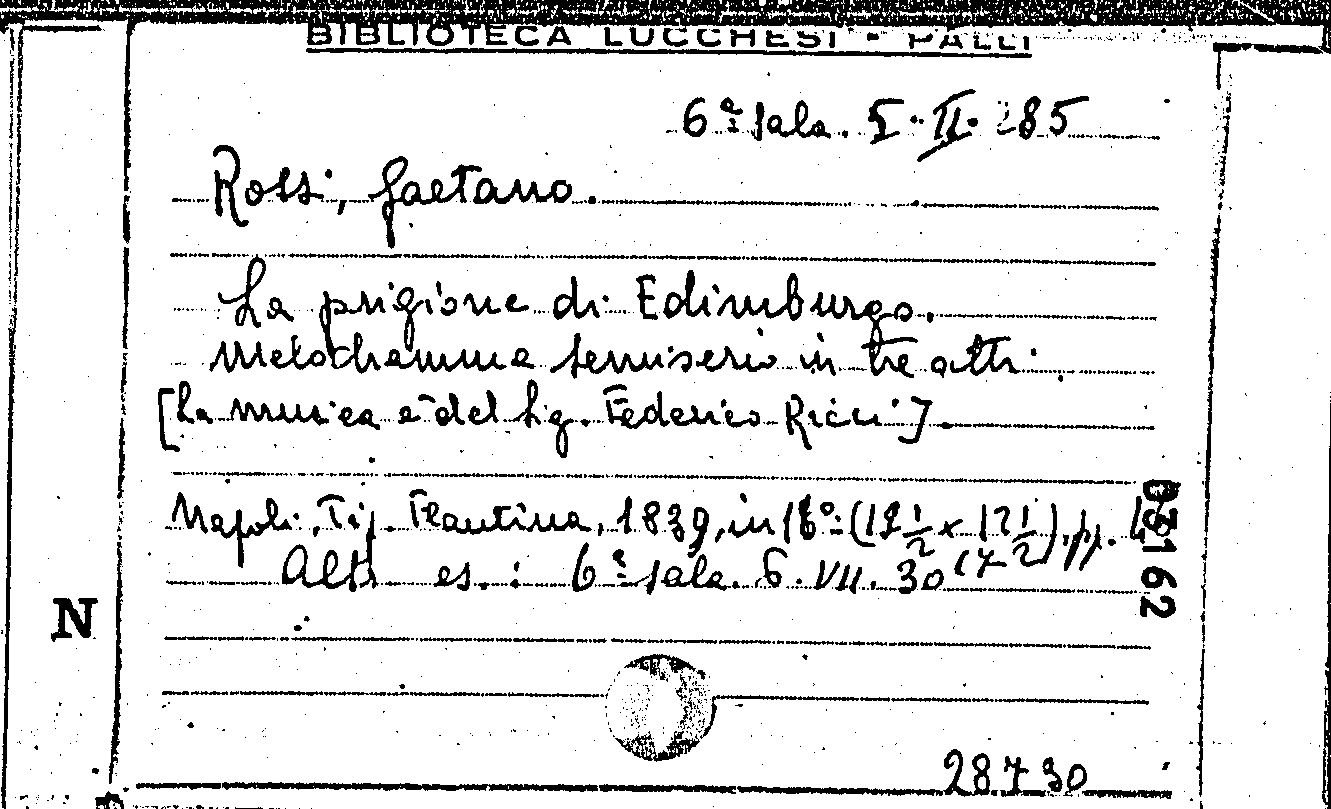 BIBLIOTECA LUCCHESI - PALLI
6ª sala. I. II. 285
Rossi, Gaetano.
La prigione di Edimburgo.
Melodramma semiserio in tre atti.
[La musica è del Sig. Federico Ricci].
Napoli, Tip. Flautina, 1839, in 16º (19 1/2 x 12 1/2), pp.
Altr es.: 6ª sala. 6. VII. 30 (7
03162
N
28730